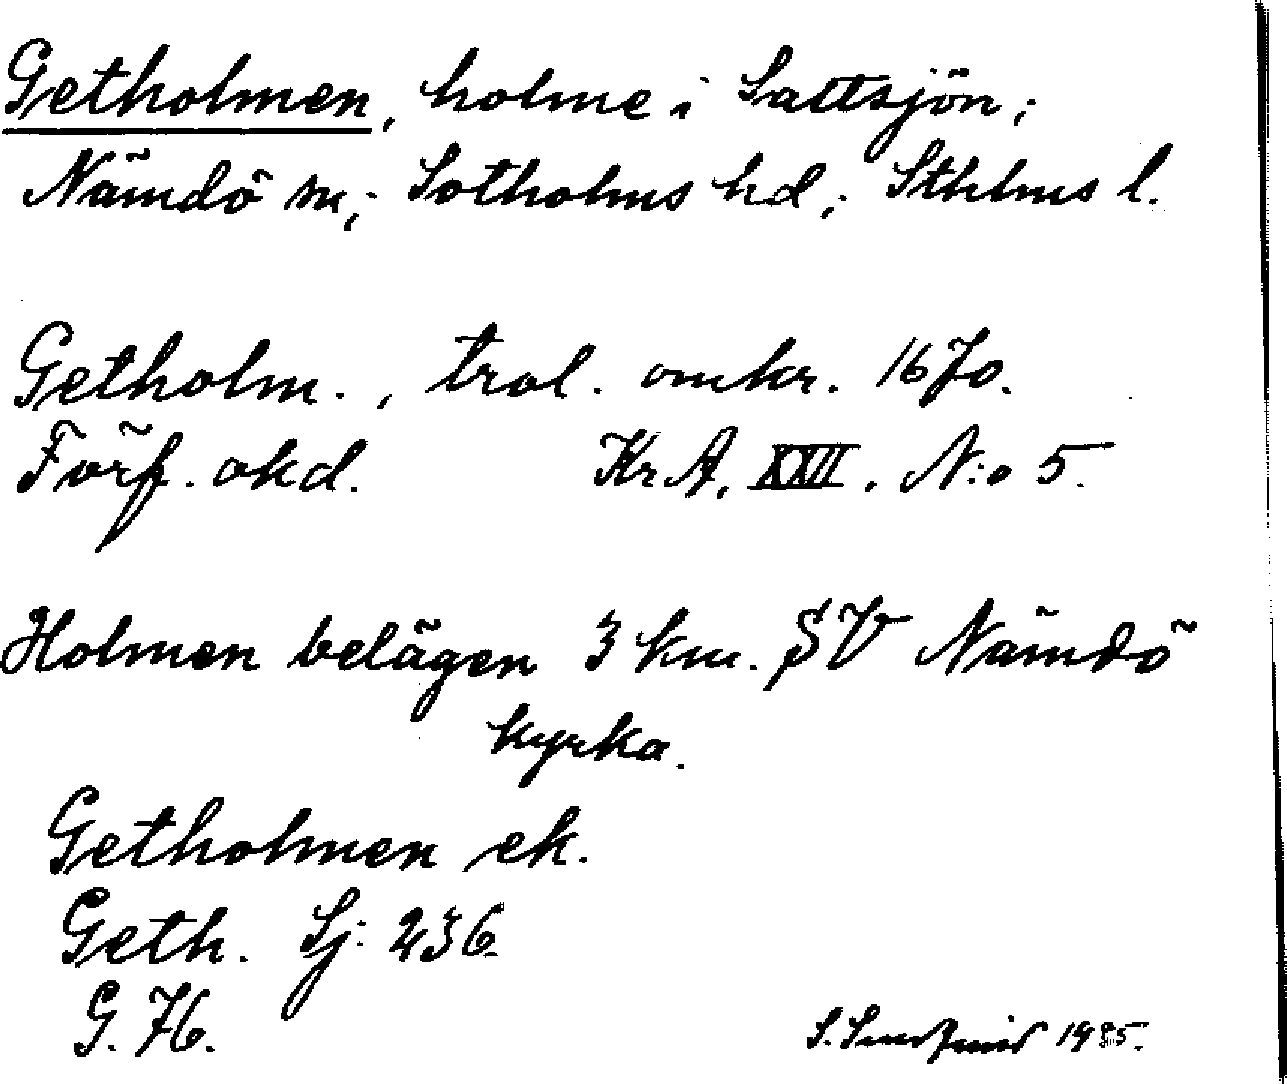 Getholmen, holme i Saltsjön;
Nämdö sn; Sotholms hd; Sthlms l.
Getholm., trol. omkr. 1670.
Förf. okd. Kr A. XXII. N:o 5.
Holmen belägen 3 km. SV Nämdö
kyrka.
Getholmen ek.
Geth. Sj: 236.
G. 76.
S. 1935.